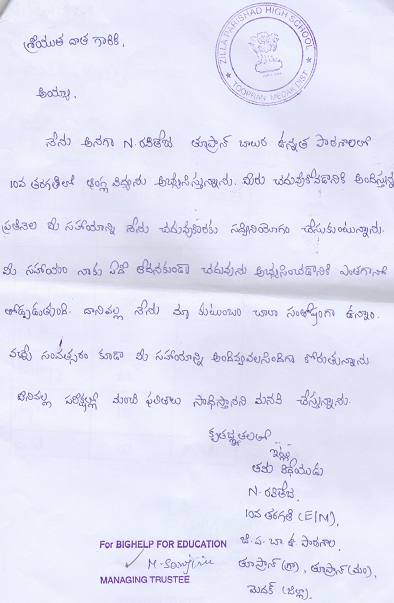 శ్రీయుత దాత గారికి,
ZILLA PARISHAD HIGH SCHOOL
★ TOOPRAN MEDAK DIST ★
అయ్యా,
నేను అనగా N. రవితేజ తూప్రాన్ బాలుర ఉన్నత పాఠశాలలో
10వ తరగతిలో ఆంగ్ల విద్యను అభ్యసిస్తున్నాను. మీరు చదువుకోవడానికి అందిస్తున్న
ప్రతినెల మీ సహాయాన్ని నేను చదువుకొరకు సద్వినియోగం చేసుకుంటున్నాను.
మీ సహాయం నాకు ఏదో చదువును అభ్యసించడానికి ఎంతగానో
తోడ్పడుతుంది. దానివల్ల నేను మా కుటుంబం చాలా సంతోషంగా ఉన్నాం.
వచ్చే సంవత్సరం కూడా మీ సహాయాన్ని అందివ్వవలసిందిగా కోరుతున్నాను.
దీనివల్ల పరీక్షల్లో మంచి ఫలితాలు సాధిస్తానని మనవి చేస్తున్నాను.
కృతజ్ఞతలతో
ఇట్లు
తమ విధేయుడు
N. రవితేజ,
10వ తరగతి (E/M),
జి. ప. బా. ఉ. పాఠశాల,
తూప్రాన్ (గ్రా), తూప్రాన్ (మం),
మెదక్ (జిల్లా).
For BIGHELP FOR EDUCATION
MANAGING TRUSTEE